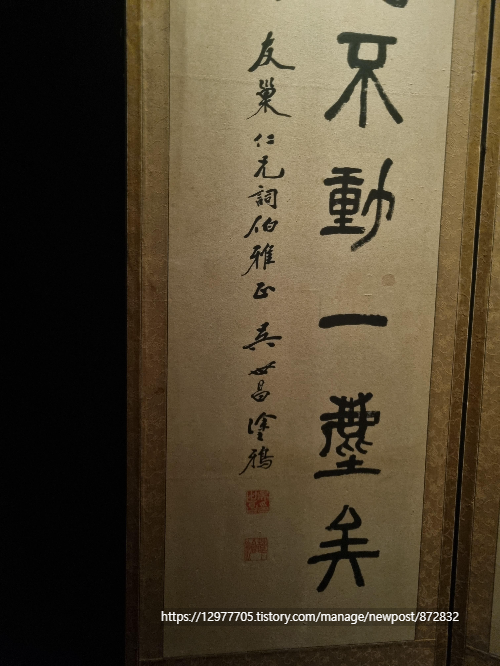 不動一塵矣
友巢仁兄詞伯雅正 吳世昌塗鴉
https://12977705.tistory.com/manage/newpost/872832